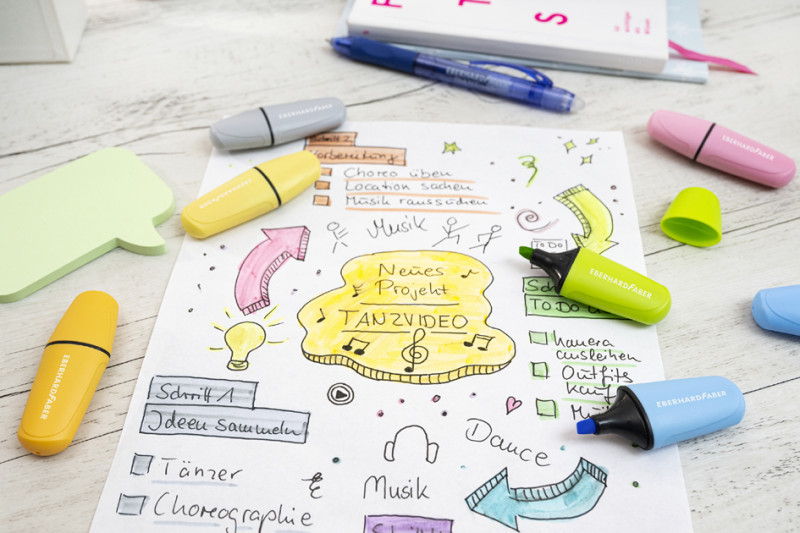 EBERHARD FABER
EBERHARD FABER
EBERHARD FABER
EBERHARD FABER
Schritt 2
Vorbereitung
Choreo üben
Location suchen
Musik raussuchen
Musik
Neues
Projekt
TANZVIDEO
TO DO
TO DO
Kamera
ausleihen
Outfits
EBERHARD FABER
EBERHARD FABER
EBERHARD FABER
Schritt 1
Ideen sammeln
Tänzer
Choreographie
&
Musik
Dance